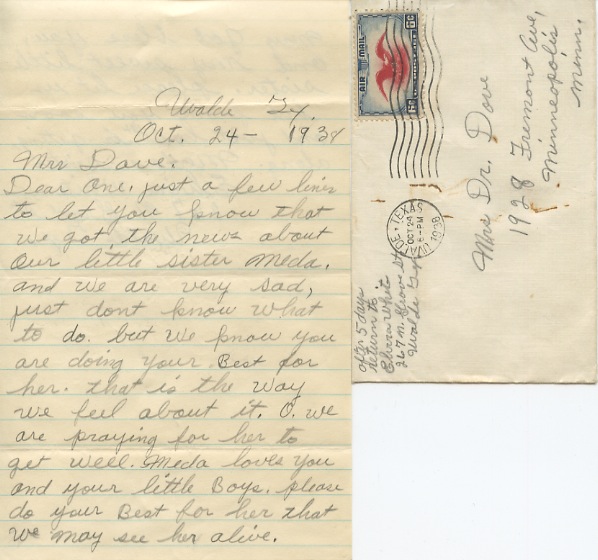 Uvalde Tx.
Oct. 24 - 1938
Mrs Dave.
Dear One. just a few lines
to let you know that
we got the news about
our little sister Meda.
and we are very sad,
just dont know what
to do. but we know you
are doing your Best for
her. that is the way
we feel about it. O. we
are praying for her to
get well. Meda loves you
and your little Boys. please
do your Best for her that
we may see her alive.
AIR MAIL
6¢ 6¢
UVALDE, TEXAS
OCT 24
8-PM
1938
Mrs Dr. Dove
1928 Fremont Ave,
Minneopolis
Minn.
after 5 days
return to
White
267 N. St
Uvalde Tx